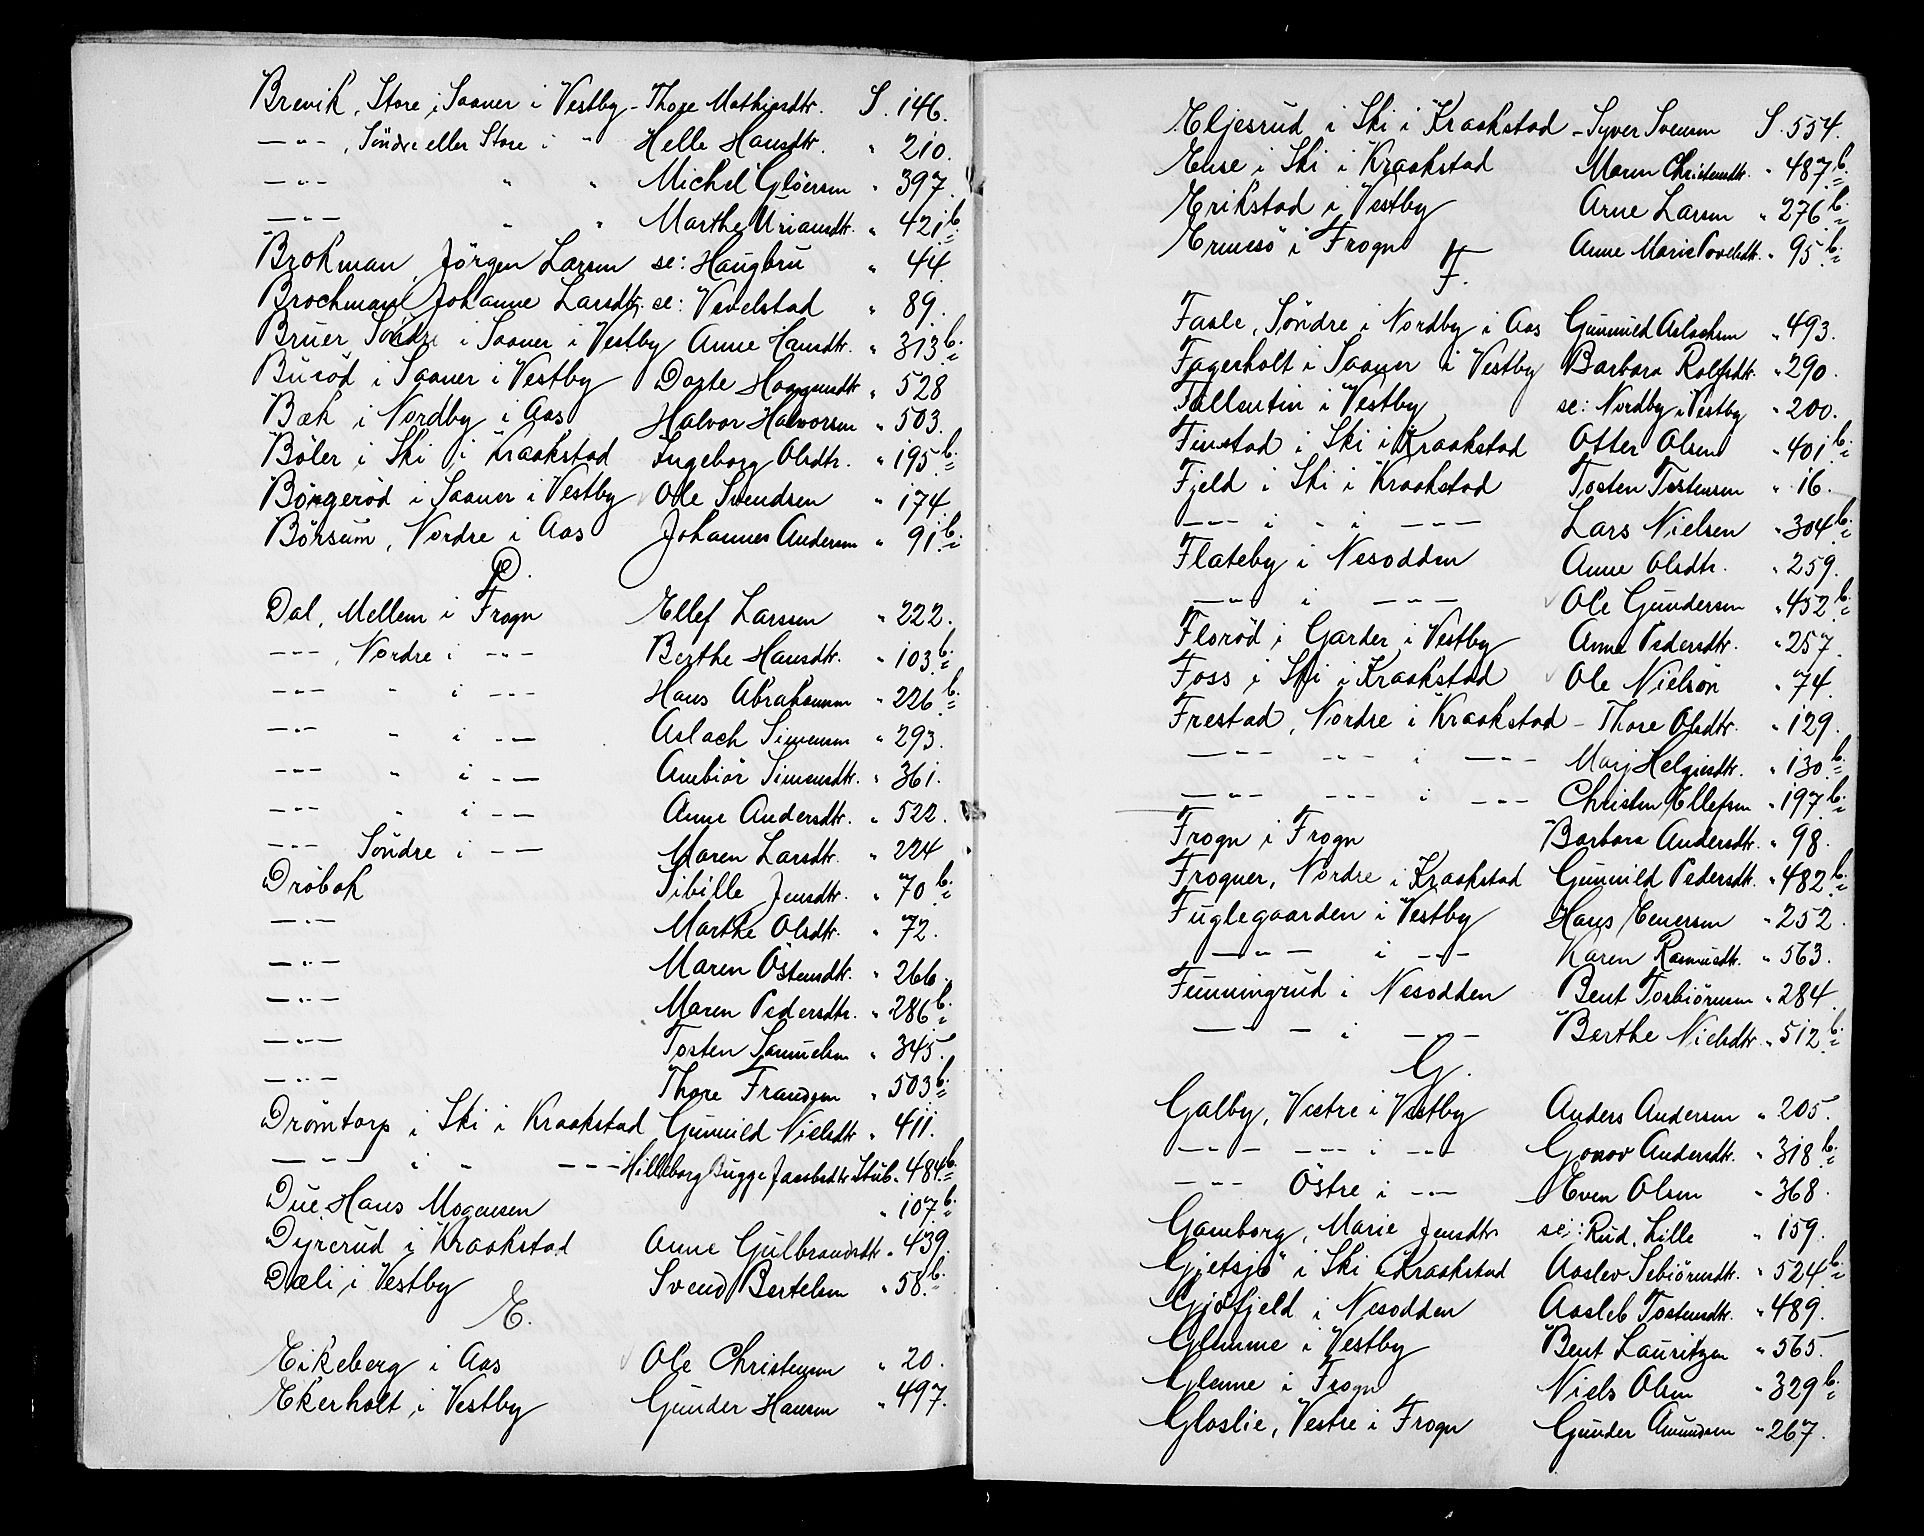 Brevik, Store i Saaner i Vestby - Thore Mathiasdtr. S. 146.
-"- , Søndre eller Store i " Helle Hansdtr. " 210.
-"- " " Michel Gløersen " 397.
-"- " " Marthe Uriansdtr. " 421 b.
Brokman, Jörgen Larsen se: Haugbru " 44
Brochman Johanne Larsdtr. se: Vevelstad " 89.
Bruer Søndre i Saaner i Vestby Anne Hansdtr. " 313 b.
Buröd i Saaner i Vestby Dorte Haagensdtr " 528
Bæk i Nordby i Aas Halvor Halvorsen " 503.
Böler i Ski i Kraakstad Ingeborg Olsdtr. " 195 b.
Börgeröd i Saaner i Vestby Ole Svendsen " 174
Börsum, Nordre i Aas Johannes Andersen " 91 b.
D.
Dal, Mellem i Frogn Ellef Larssen " 222.
-"- , Nordre i -"- Berthe Hansdtr. " 103 b.
-"- " i -"- Hans Abrahamsen " 226 b.
-"- " i -"- Aslach Simensen " 293.
-"- " i -"- Anebiör Simensdtr. " 361.
-"- " i -"- Anne Andersdtr. " 522.
-"- Söndre i -"- Maren Larsdtr. " 224
Dröbak Sibille Jensdtr. " 70 b.
-"- Marthe Olsdtr. " 72.
-"- Maren Östensdtr. " 266.
-"- Maren Pedersdtr. " 286 b.
-"- Tosten Samuelsen " 345.
-"- Thore Frandsen " 503 b.
Drömtorp i Ski i Kraakstad Gunnild Nielsdtr " 411.
-"- i " -"- Hilleborg Bugge Jacobsdtr Stub " 484 b.
Due Hans Mogensen " 107 b.
Dyrerud i Kraakstad Anne Gulbrandsdtr " 439.
Dæli i Vestby Svend Bertelsen " 58 b.
E.
Eikeberg i Aas Ole Christensen " 20.
Ekerholt i Vestby Gunder Hansen " 497.
Eljesrud i Ski i Kraakstad - Syver Svensen S. 554.
Ense i Ski i Kraakstad Maren Christensdtr. " 487 b.
Erikstad i Vestby Arne Larsen " 276 b.
Ermesö i Frogn Anne Marie Povelsdtr. " 95 b.
F.
Faale, Søndre i Nordby i Aas Gunnild Aslachsen " 493.
Fagerholt i Saaner i Vestby Barbara Rolfsdtr. " 290.
Fallentin i Vestby se: Nordby i Vestby " 200.
Finstad i Ski i Kraakstad Otter Olsen " 401 b.
Fjeld i Ski i Kraakstad Tosten Tostensen " 16.
-"- i " i -"- Lars Nielsen " 304 b.
Flateby i Nesodden Anne Olsdtr. " 259.
-"- i -"- Ole Gundersen " 452 b.
Floröd i Garder i Vestby Anne Pedersdtr. " 257.
Foss i Ski i Kraakstad Ole Nielsön " 74.
Frestad, Nordre i Kraakstad - Thore Olsdtr. " 129.
-"- -"- i -"- Marj Helgesdtr. " 130 b.
-"- -"- i -"- Christen Ellefsen " 197 b.
Frogn i Frogn Barbara Andersdtr. " 98.
Frogner, Nordre i Kraakstad Gunnild Pedersdtr. " 482 b.
Fuglegaarden i Vestby Hans Enersen " 252.
-"- i -"- Karen Rasmusdtr. " 563.
Funningrud i Nesodden Bent Torbiörnsen " 284.
-"- i -"- Berthe Nielsdtr. " 512 b.
G.
Galby, Vestre i Vestby Anders Andersen " 205.
-"- -"- i -"- Gonor Andersdtr. " 318 b.
-"- Östre i -"- Even Olsen " 368.
Gamborg, Marie Jensdtr. se: Rud, Lille " 159.
Gjetsjö i Ski i Kraakstad Aaslev Sebiörnsdtr. " 524 b.
Gjöfjeld i Nesodden Aasleb Tostensdtr. " 489.
Glemme i Vestby Bent Lauritzen " 565.
Glenne i Frogn Niels Olsen " 329 b.
Gloslie, Vestre i Frogn Gunder Amundsen " 267.